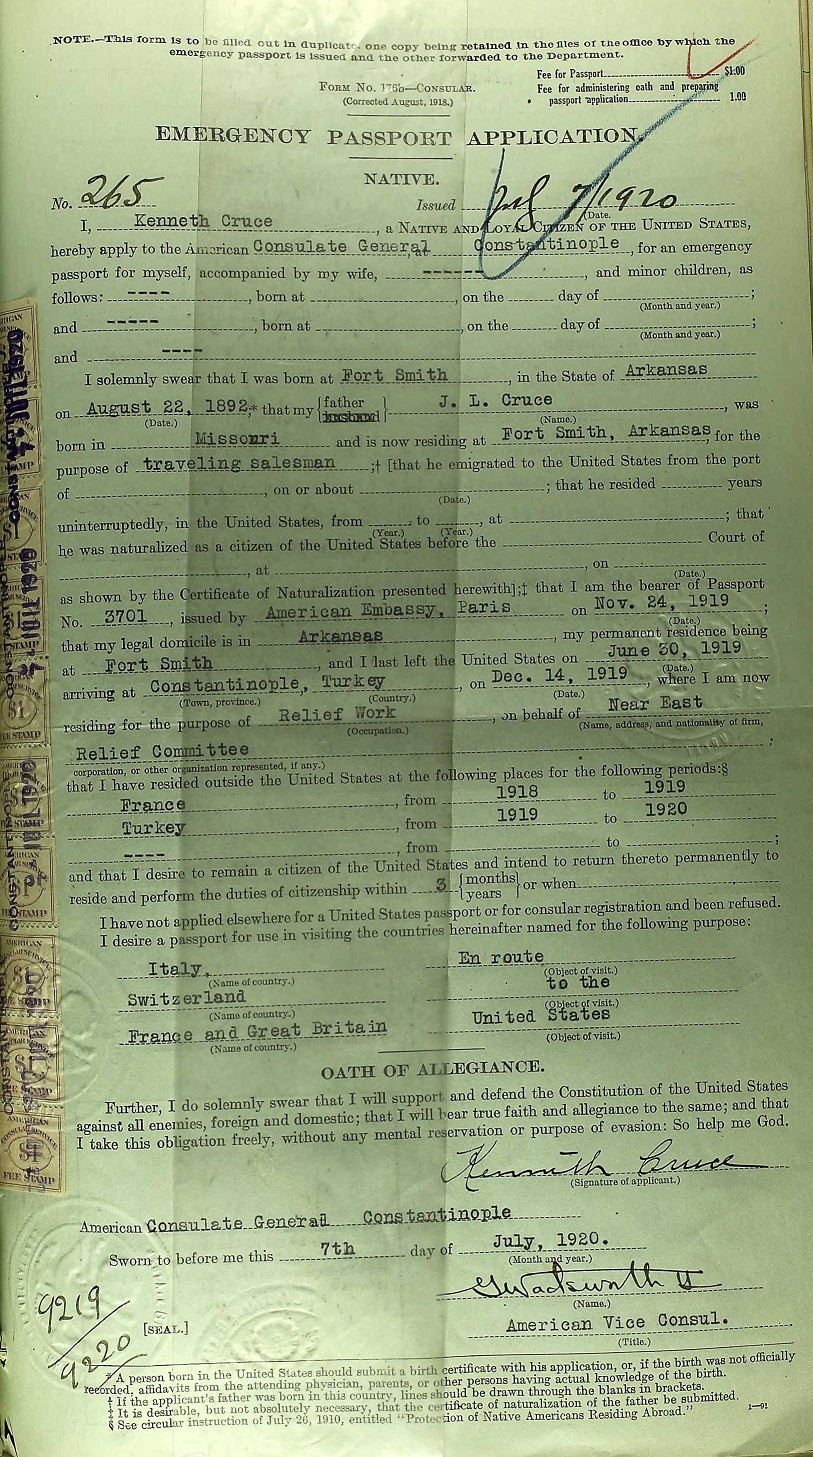 NOTE.—This form is to be filled out in duplicate. one copy being retained in the files of the office by which the
emergency passport is issued and the other forwarded to the Department.
Fee for Passport $1.00
Fee for administering oath and preparing
passport application 1.00
FORM No. 176b—CONSULAR.
(Corrected August, 1918.)
EMERGENCY PASSPORT APPLICATION.
NATIVE.
No. 265 Issued Jul 7/1920
(Date.)
I, Kenneth Cruce, a NATIVE AND LOYAL CITIZEN OF THE UNITED STATES,
hereby apply to the American Consulate General at Constantinople, for an emergency
passport for myself, accompanied by my wife, ------, and minor children, as
follows: ----, born at, on the day of ;
(Month and year.)
and -----, born at, on the day of ;
(Month and year.)
and ----
I solemnly swear that I was born at Fort Smith, in the State of Arkansas
on August 22, 1892;* that my {father husband} J. L. Cruce, was
(Date.) (Name.)
born in Missouri and is now residing at Fort Smith, Arkansas, for the
purpose of traveling salesman ;† [that he emigrated to the United States from the port
of, on or about ; that he resided years
(Date.)
uninterruptedly, in the United States, from to, at ; that
(Year.) (Year.)
he was naturalized as a citizen of the United States before the Court of
, at, on
(Date.)
as shown by the Certificate of Naturalization presented herewith];‡ that I am the bearer of Passport
No. 3701, issued by American Embassy, Paris on Nov. 24, 1919;
(Date.)
that my legal domicile is in Arkansas, my permanent residence being
at Fort Smith, and I last left the United States on June 30, 1919
(Date.)
arriving at Constantinople, Turkey, on Dec. 14, 1919, where I am now
(Town, province.) (Country.) (Date.)
residing for the purpose of Relief Work, on behalf of Near East
(Occupation.) (Name, address, and nationality of firm,
Relief Committee ;
corporation, or other organization represented, if any.)
that I have resided outside the United States at the following places for the following periods:§
France, from 1918 to 1919
Turkey, from 1919 to 1920
----, from to ;
and that I desire to remain a citizen of the United States and intend to return thereto permanently to
reside and perform the duties of citizenship within 3 {months years} or when
I have not applied elsewhere for a United States passport or for consular registration and been refused.
I desire a passport for use in visiting the countries hereinafter named for the following purpose:
Italy, En route
(Name of country.) (Object of visit.)
Switzerland to the
(Name of country.) (Object of visit.)
France and Great Britain United States
(Name of country.) (Object of visit.)
OATH OF ALLEGIANCE.
Further, I do solemnly swear that I will support and defend the Constitution of the United States
against all enemies, foreign and domestic; that I will bear true faith and allegiance to the same; and that
I take this obligation freely, without any mental reservation or purpose of evasion: So help me God.
Kenneth Cruce
(Signature of applicant.)
American Consulate General at Constantinople
Sworn to before me this 7th day of July, 1920.
(Month and year.)
GWadsworth II
(Name.)
9219
9220
[SEAL.]
American Vice Consul.
(Title.)
* A person born in the United States should submit a birth certificate with his application, or, if the birth was not officially
recorded, affidavits from the attending physician, parents, or other persons having actual knowledge of the birth.
† If the applicant's father was born in this country, lines should be drawn through the blanks in brackets.
‡ It is desirable, but not absolutely necessary, that the certificate of naturalization of the father be submitted.
§ See circular instruction of July 26, 1910, entitled "Protection of Native Americans Residing Abroad." 1—91